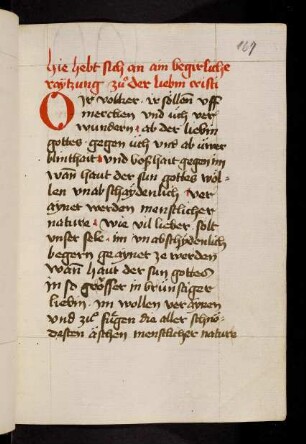 164
hie hebt sich an ain begirliche
raytzung zuͦ der liebin cristi
O Ir völker · ir söllent vff
mercken vnd üch ver
wundern ab der liebin
gottes gegen üch vnd ab üwer
blinthait vnd boßhait gegen im
wan haut der sun gottes wöl-
len vnabschaydenlich ver
aynet werden menschlicher
nature wie vil lieber solt
vnser sele · im vnabschydenlich
begern geaynet ze werden
wann haut der sun gottes
in so grösser in brünstiger
liebin · im wollen veraynen
vnd zuͦ fuͤgen die aller schnö-
desten äschen menschlicher nature